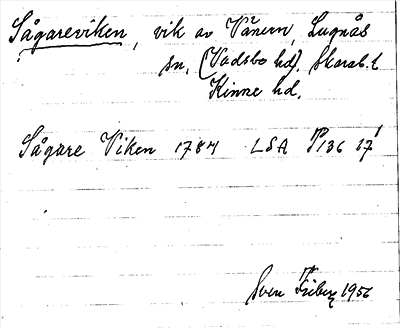 Sågareviken, vik av Vänern, Lugnås
sn. (Vadsbo hd). Skarab. l
Kinne hd.
Sågare Viken 1784 LSA P136 27¹
Sven 1956